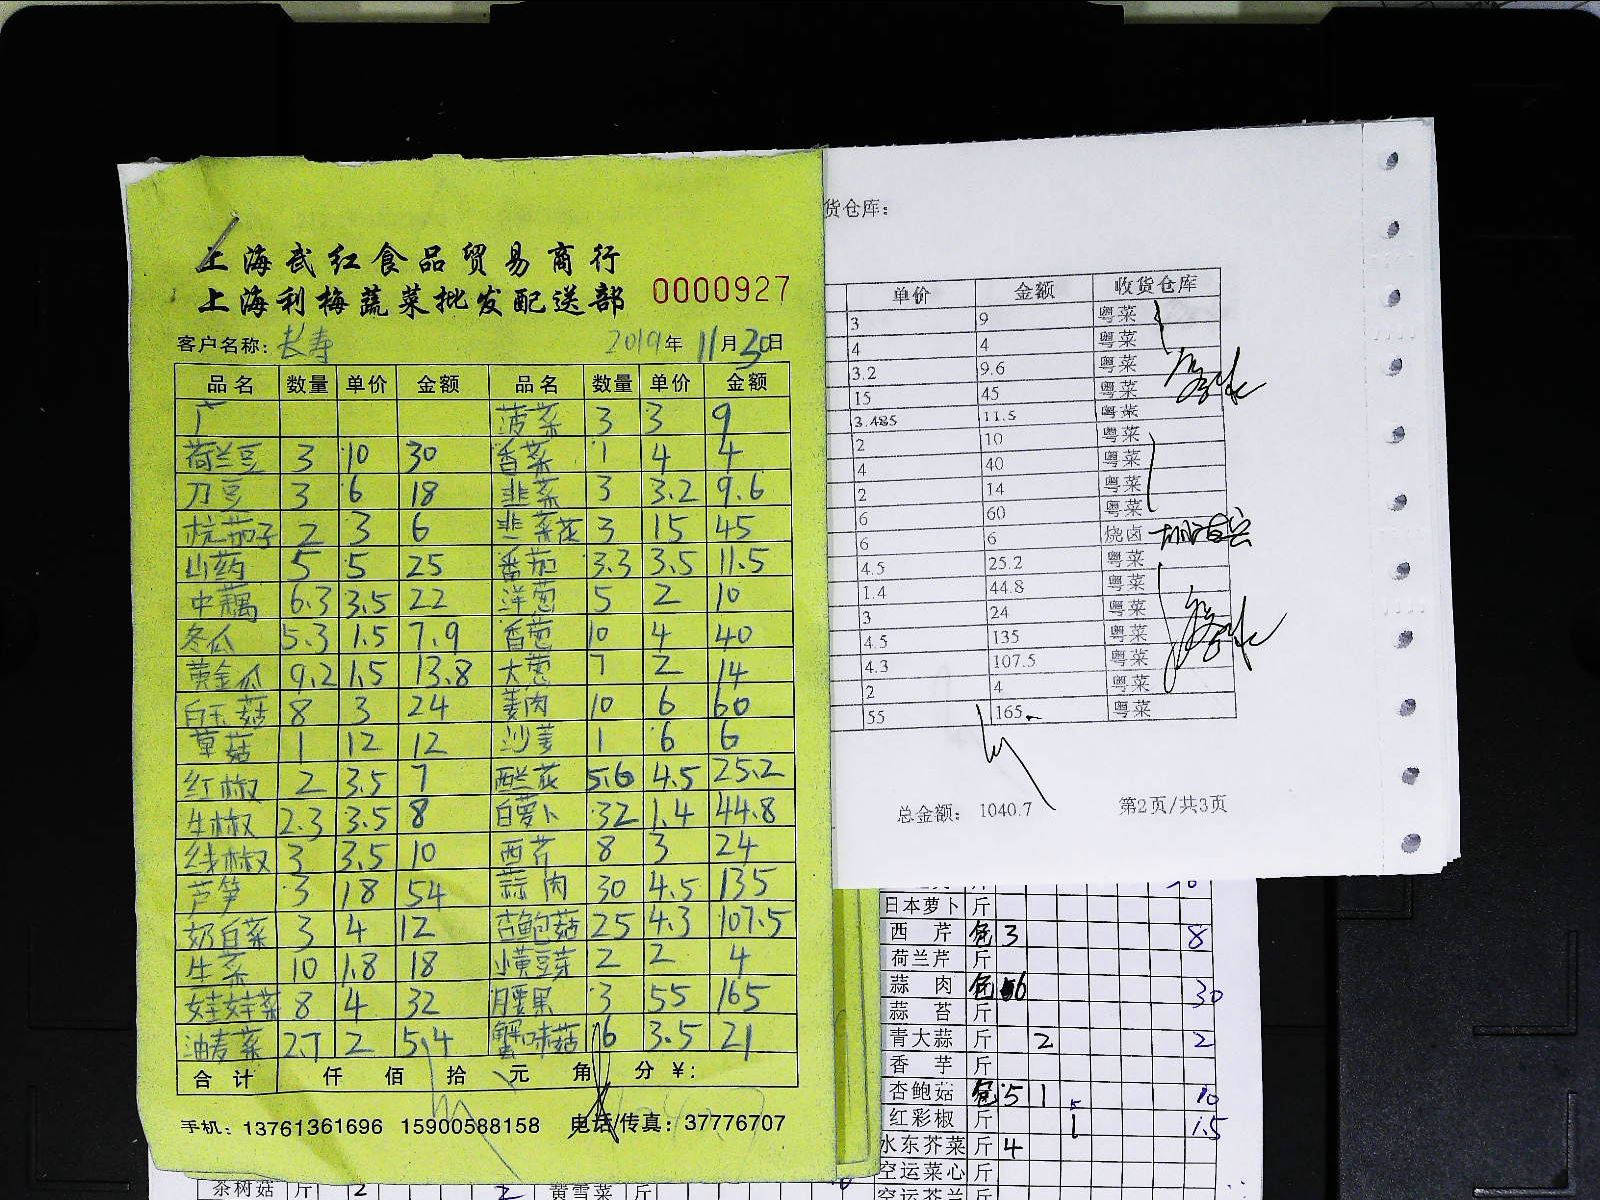 上海武红食品贸易商行
上海利梅蔬菜批发配送部 0000927
客户名称: 长寿 2019年 11月30日
品名 数量 单价 金额 品名 数量 单价 金额
广 菠菜 3 3 9
荷兰豆 3 10 30 香菜 1 4 4
刀豆 3 6 18 韭菜 3 3.2 9.6
杭茄子 2 3 6 韭菜花 3 15 45
山药 5 5 25 番茄 3.3 3.5 11.5
中藕 6.3 3.5 22 洋葱 5 2 10
冬瓜 5.3 1.5 7.9 香葱 10 4 40
黄金瓜 9.2 1.5 13.8 大葱 7 2 14
白玉菇 8 3 24 姜肉 10 6 60
草菇 1 12 12 沙姜 1 6 6
红椒 2 3.5 7 西兰花 5.6 4.5 25.2
牛椒 2.3 3.5 8 白萝卜 32 1.4 44.8
线椒 3 3.5 10 西芹 8 3 24
芦笋 3 18 54 蒜肉 30 4.5 135
奶白菜 3 4 12 杏鲍菇 25 4.3 107.5
生菜 10 1.8 18 小黄豆芽 2 2 4
娃娃菜 8 4 32 腰果 3 55 165
油麦菜 2.7 2 5.4 蟹味菇 6 3.5 21
合计 仟 佰 拾 元 角 分 ¥:
手机: 13761361696 15900588158 电话/传真: 37776707
货仓库:
单价 金额 收货仓库
3 9 粤菜
4 4 粤菜
3.2 9.6 粤菜
15 45 粤菜
3.485 11.5 粤菜
2 10 粤菜
4 40 粤菜
2 14 粤菜
6 60 粤菜
6 6 烧卤
4.5 25.2 粤菜
1.4 44.8 粤菜
3 24 粤菜
4.5 135 粤菜
4.3 107.5 粤菜
2 4 粤菜
55 165 粤菜
总金额: 1040.7 第2页/共3页
日本萝卜 斤
西芹 包 3 8
荷兰芹 斤
蒜肉 包 6 30
蒜苔 斤
青大蒜 斤 2 2
香芋 斤
杏鲍菇 包 5 1 10
红彩椒 斤 1 1.5
水东芥菜 斤 4
空运菜心 斤
空运芥兰 斤
茶树菇 斤 2 2 黄雪菜 斤